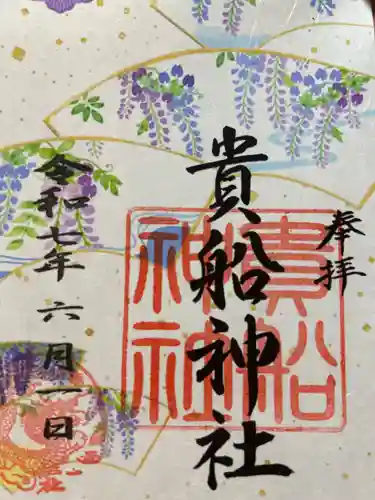 奉拝
貴船神社
貴船
神社
令和七年六月一日